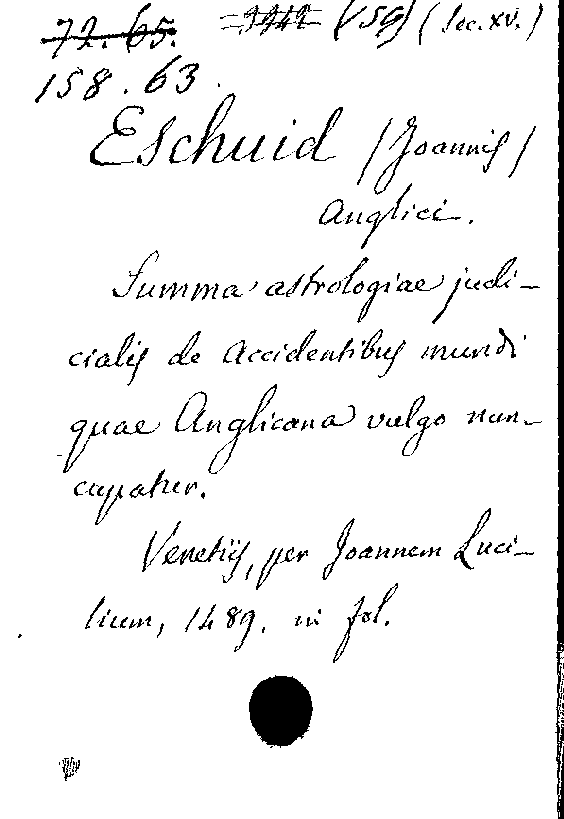 72.65. 3942 (59) (Sec. XV.)
158.63.
Eschuid (Joannis)
Anglici.
Summa astrologiae judi-
cialis de accidentibus mundi
quae Anglicana vulgo nun-
cupatur.
Venetiis, per Joannem Luci-
lium, 1489. in fol.